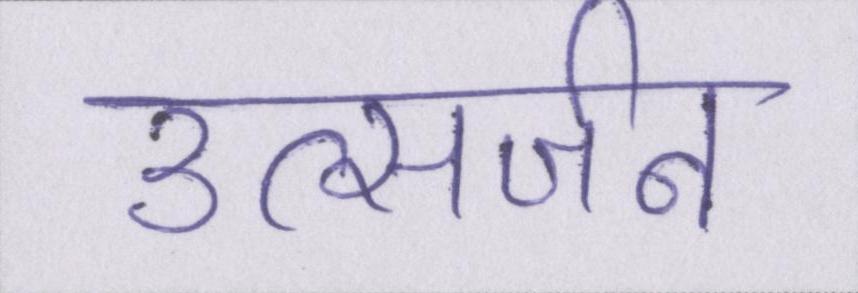 उत्सर्जन